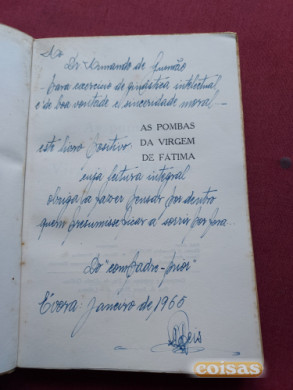 Ao
Dr. Armando de Gusmão
para exercicio de ginástica intelectual
e de boa vontade e sinceridade moral
AS POMBAS
DA VIRGEM
DE FÁTIMA
este livro positivo
cuja leitura integral
obriga a fazer pensar por dentro
quem presumisse ficar a sorrir por fora
Do "compadre-prior"
Évora - Janeiro de 1960
coisas